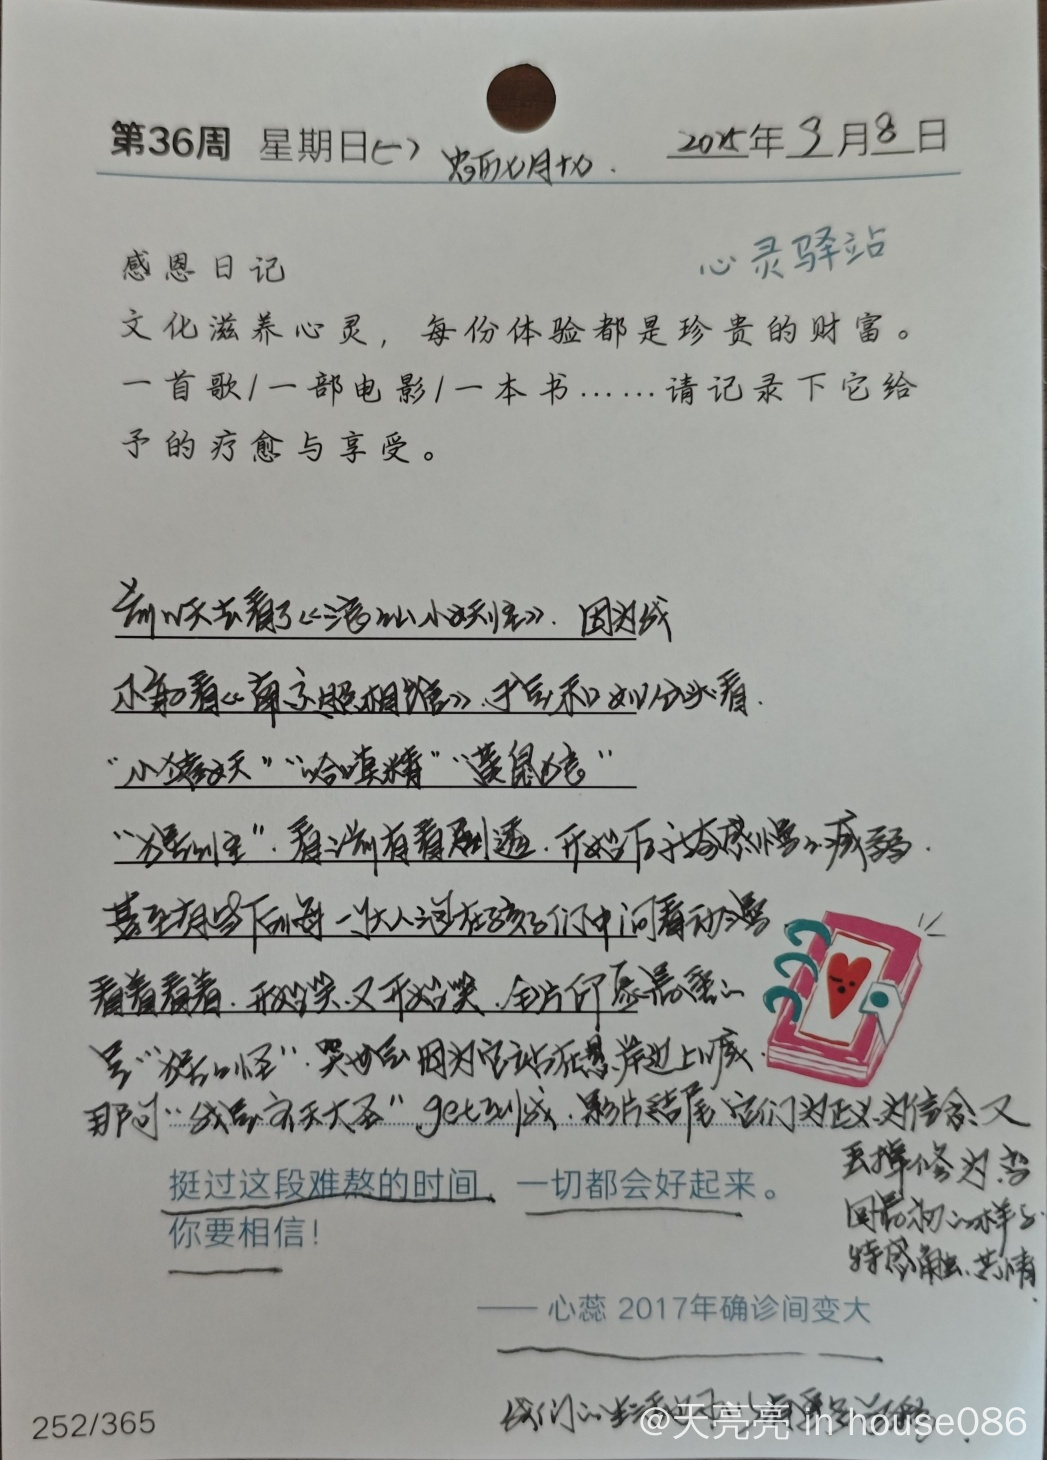 第36周 星期日(一) 农历七月十七. 2025年9月8日
感恩日记
心灵驿站
文化滋养心灵，每份体验都是珍贵的财富。
一首歌/一部电影/一本书……请记录下它给
予的疗愈与享受。
前以天去看了《浪浪山小妖怪》. 因为我
不敢看《南京照相馆》.于是和刘
"小猪妖" "蛤蟆精" "黄鼠狼"
"猩猩怪". 看之前有看剧透. 开始下
甚至有当下的每一大人词在孩子们中间看动漫
看着看着. 开始笑.又开始哭. 全片印
是"猩猩怪". 哭也是因为它站在悬岸边上喊.
那句"我是齐天大圣" get到我. 影片结尾它们为正义.为信念又
丢掉修为.变
回最初的样子
特感触.共情.
挺过这段难熬的时间，一切都会好起来。
你要相信！
—— 心蕊 2017年确诊间变大
我们的
252/365
@天亮亮 in house086